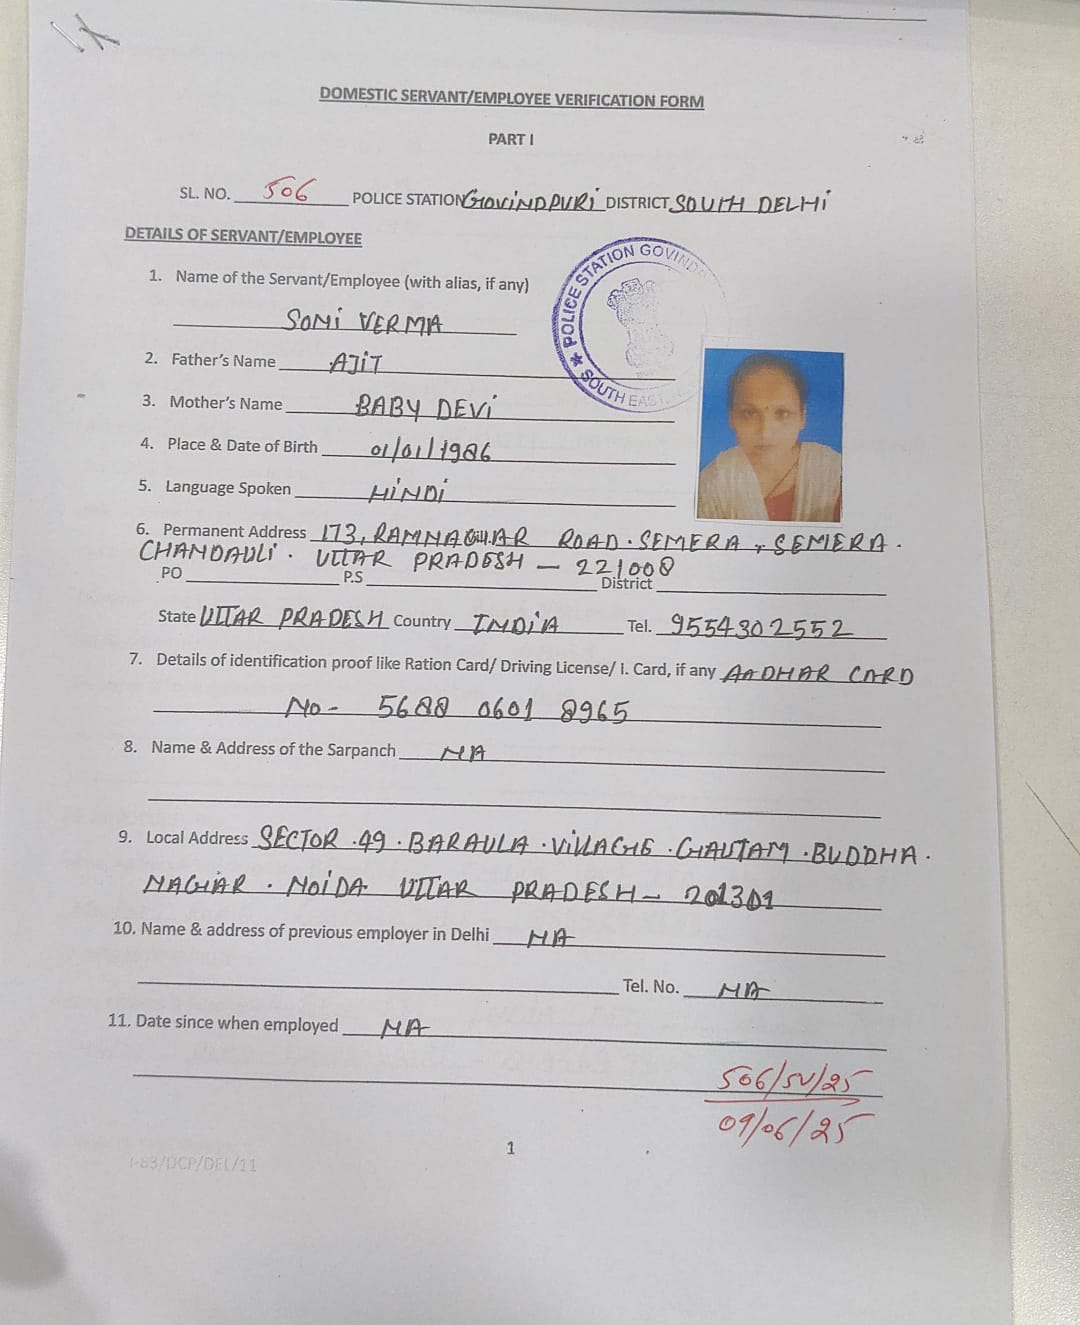 DOMESTIC SERVANT/EMPLOYEE VERIFICATION FORM
PART I
SL. NO. 506 POLICE STATION GOVINDPURI DISTRICT SOUTH DELHI
DETAILS OF SERVANT/EMPLOYEE
POLICE STATION GOVIND
SOUTH EAST
1. Name of the Servant/Employee (with alias, if any)
SONI VERMA
2. Father's Name AJIT
3. Mother's Name BABY DEVI
4. Place & Date of Birth 01/01/1986
5. Language Spoken HINDI
6. Permanent Address 173, RAMNAGAR ROAD. SEMERA, SEMERA.
CHANDAULI. UTTAR PRADESH - 221008
PO P.S District
State UTTAR PRADESH Country INDIA Tel. 9554302552
7. Details of identification proof like Ration Card/ Driving License/ I. Card, if any AADHAR CARD
No- 5688 0601 8965
8. Name & Address of the Sarpanch NA
9. Local Address SECTOR.49.BARAULA.VILLAGE.GAUTAM.BUDDHA.
NAGAR. NOIDA UTTAR PRADESH- 201301
10. Name & address of previous employer in Delhi NA
Tel. No. NA
11. Date since when employed NA
506/SV/25
09/06/25
1
I-83/DCP/DEL/11